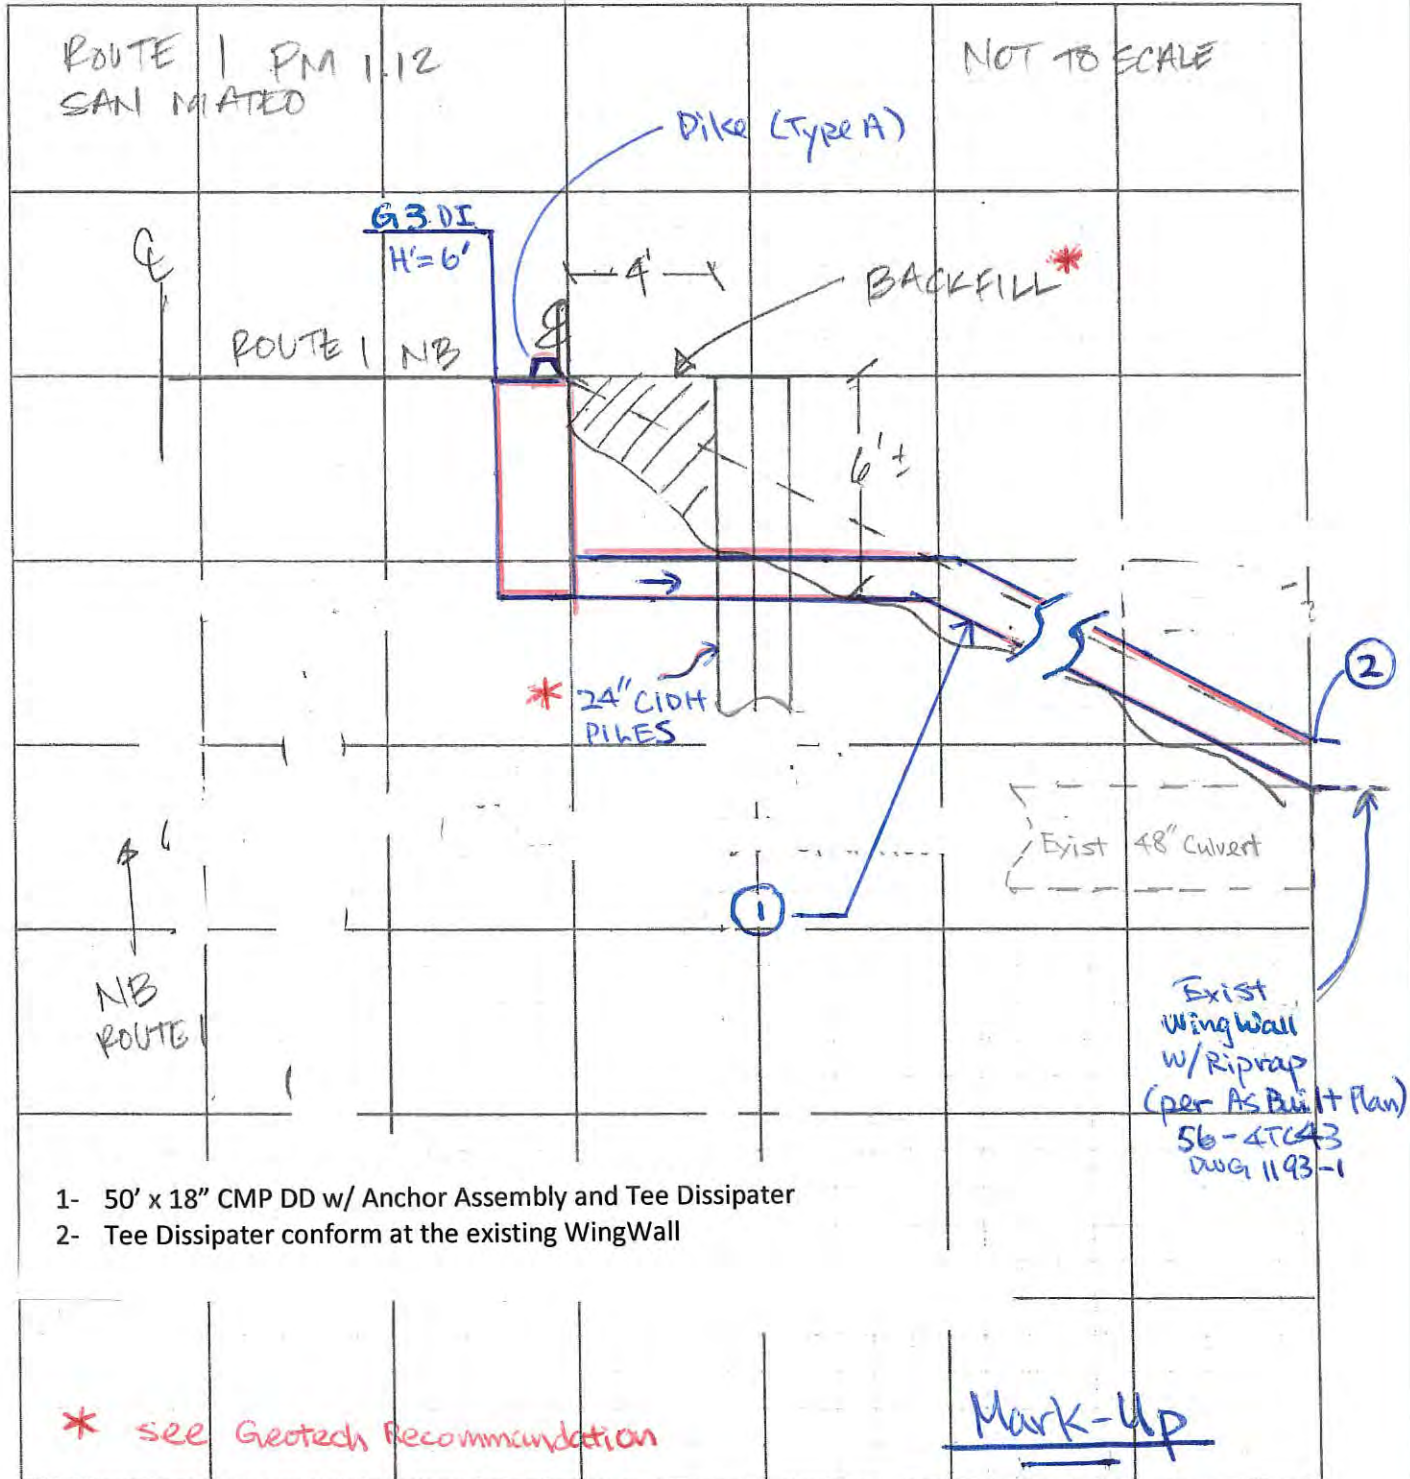 ROUTE 1 PM 1.12
SAN MATEO
NOT TO SCALE
Dike (Type A)
G3 DI
H'=6'
℄
4'
BACKFILL*
ROUTE 1 NB
6'±
* 24" CIDH
PILES
2
Exist 48" Culvert
1
NB
ROUTE 1
Exist
WingWall
W/Riprap
(per As Built Plan)
DWG 1193-1
1- 50' x 18" CMP DD w/ Anchor Assembly and Tee Dissipater
2- Tee Dissipater conform at the existing WingWall
* see Geotech Recommandation
Mark-Up